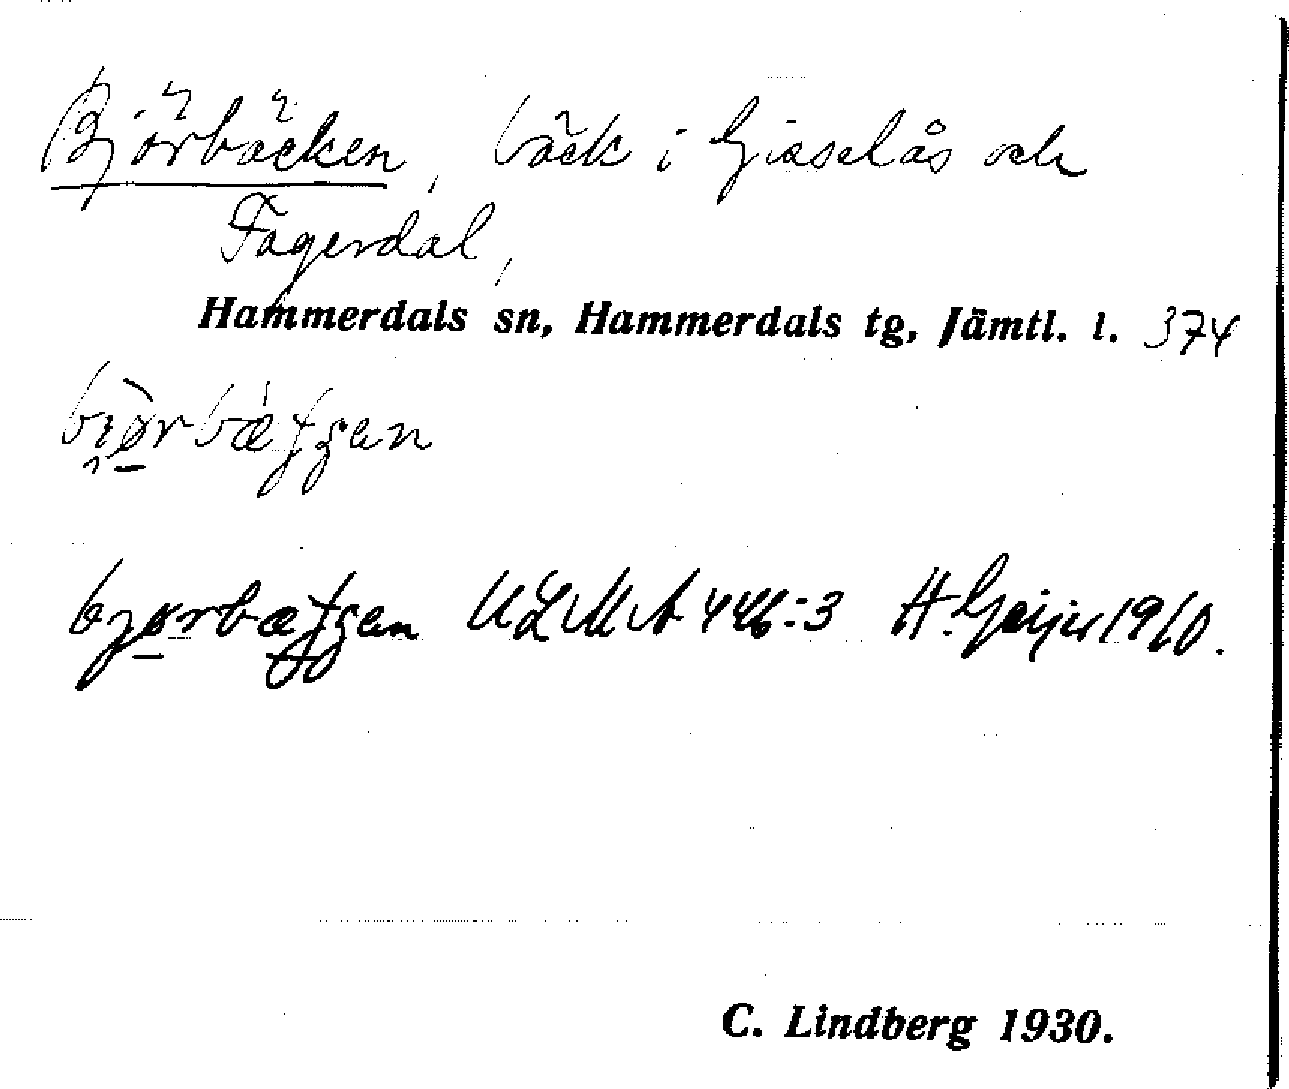 Björbäcken, bäck i Gisselås och
Fagerdal,
Hammerdals sn, Hammerdals tg, Jämtl. l. 374
ULMA 446:3 H. Geijer 1910.
C. Lindberg 1930.